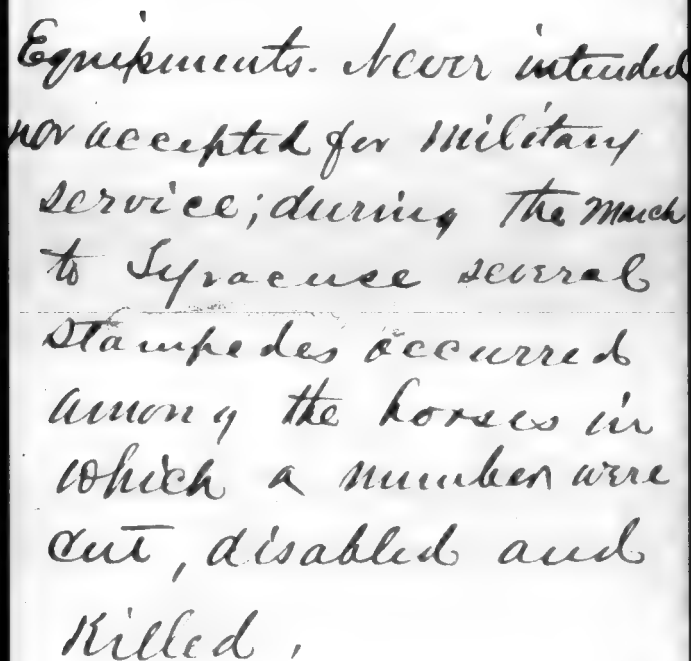 Equipments. Never intended
nor accepted for military
service; during the march
to Syracuse several
stampedes occurred
among the horses in
which a number were
cut, disabled and
killed.